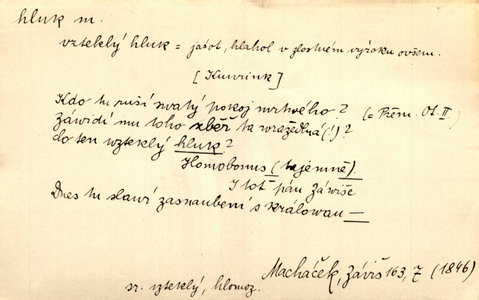 hluk m.
vzteklý hluk = jásot, hlahol v zlostném výroku ovšem.
[Kuvrink]
Kdo tu ruší svatý pokoj mrtvého? (= Přem. Ot. II.)
Závidí mu toho zběř ta wražedlná (!)?
co ten vzteklý hluk?
Homobonus (tajemně).
I toť pán Záwiše
Dnes tu slawí zasnaubení s králowau —
Macháček, Záviš 163, 7 (1846)
sr. vzteklý, hlomoz.